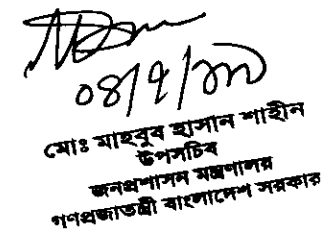 ০৪/৭/২০১৩
মোঃ মাহবুব হাসান শাহীন
উপসচিব
জনপ্রশাসন মন্ত্রণালয়
গণপ্রজাতন্ত্রী বাংলাদেশ সরকার